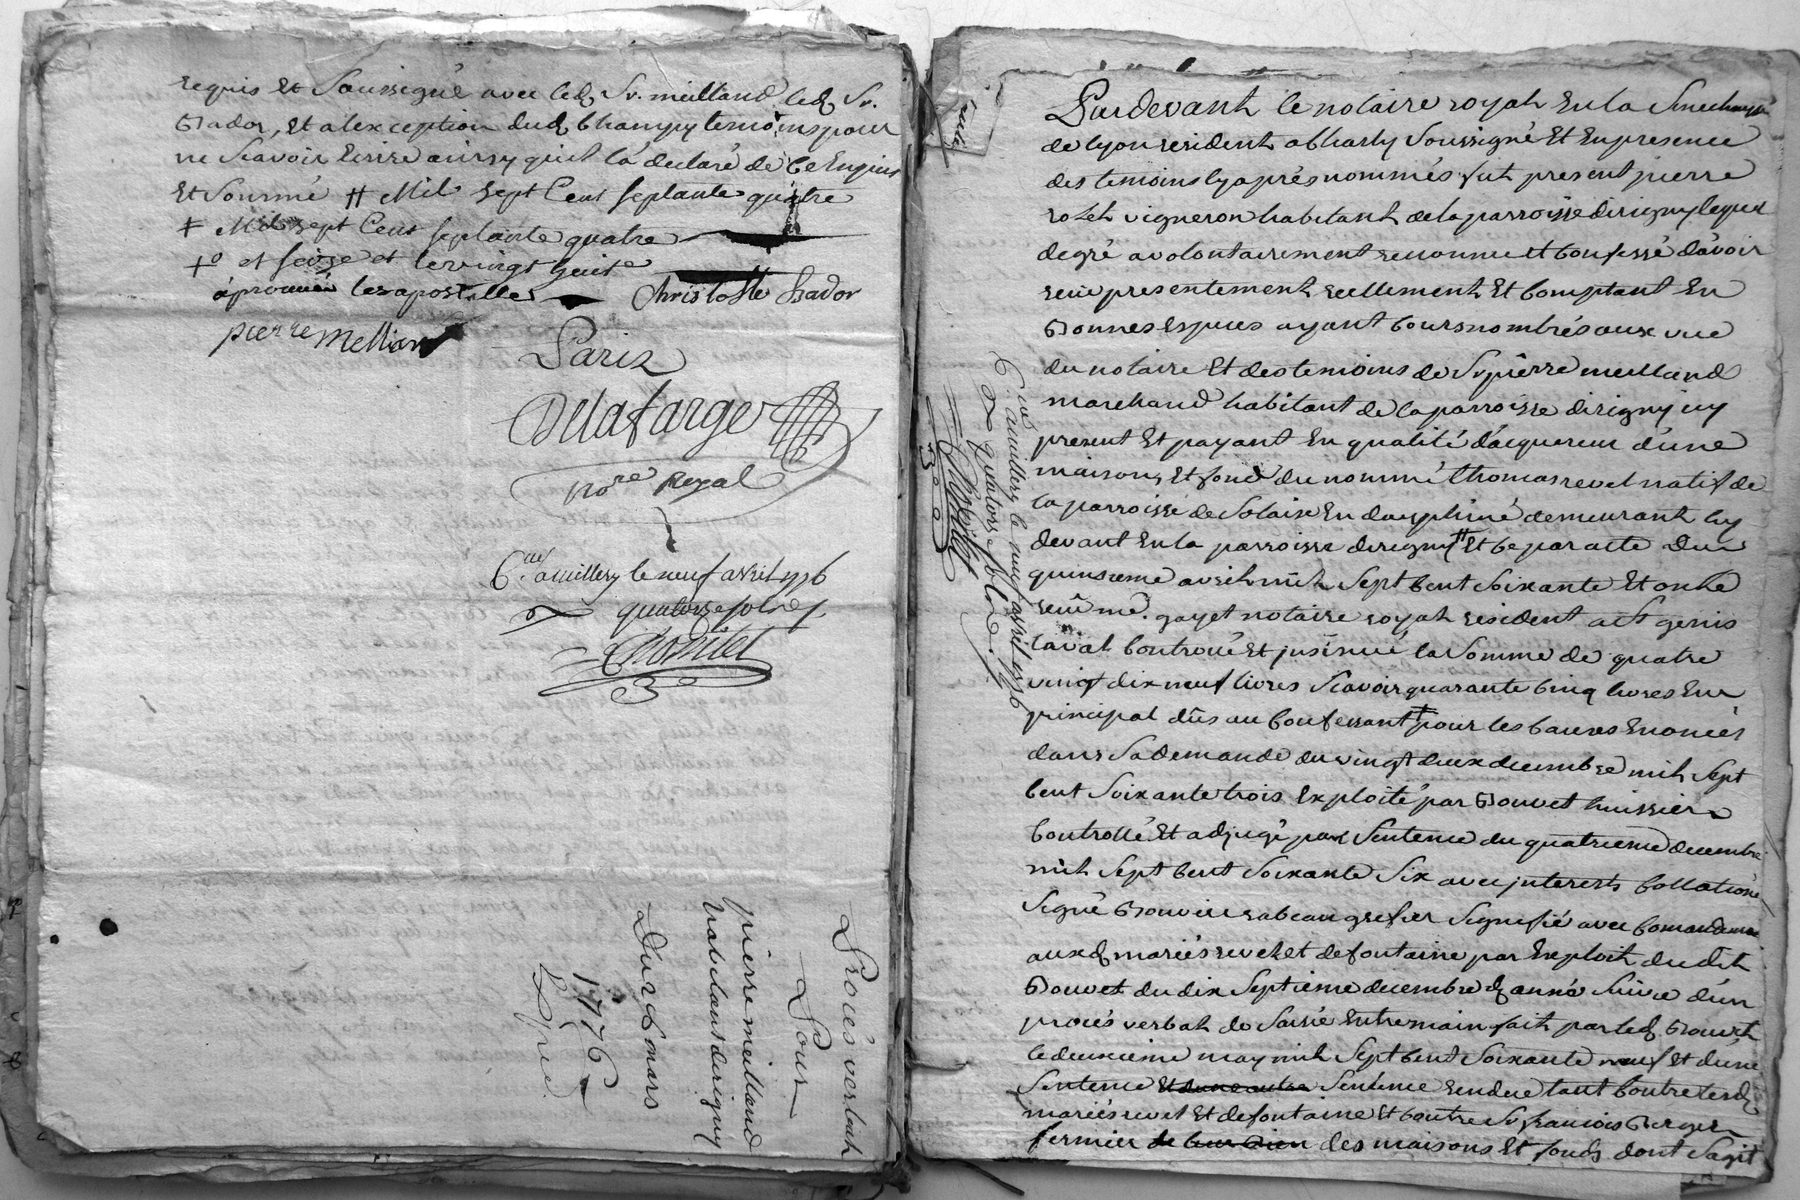 requis et Soussigné avec led Sr. meilland led Sr.
Bador, et alexception dud Champy temoins pour
ne Scavoir Ecrire ainsy quil la declaré de Ce Enquis
Et Sommé # Mil sept Cent septante quatre
# Mil sept Cent septante quatre
+o et seize et le vingt huit
aprouvée les apostilles Christofle Bador
pierre Mellian
Paris
Delafarge
nore Royal
Cllé a millery le neuf avril 1776
R quatorze sols
Procés verbal
Pour
pierre meilland
habitant dirigny
Du 28 mars
1776
Expié
Pardevant le notaire royal En la Senechaussé
de lyon resident a Charly Soussigné Et En presence
des temoins Cy aprés nommés fut present pierre
vigneron habitant de la parroisse dirigny lequel
de gré a volontairement reconnu et Confessé davoir
reçu presentement reellement Et Comptant En
Bonnes Especes ayant Cours nombrés aux vue
du notaire Et des temoins de Sr pierre meilland
marchand habitant de la parroisse dirigny icy
present Et payant En qualité dacquereur dune
maison, Et fond du nommé thomas revel natif de
la parroisse de Solaise En dauphiné demeurant Cy
devant En la parroisse dirigny # Et Ce par acte du
quinsieme avril mil Sept Cent Soixante Et onze
reçu me. gayet notaire royal resident a St genis
laval Controlé Et jnsinué la Somme de quatre
vingt dix neuf livres Scavoir quarante Cinq livres En
principal dûs au Confessant # pour les Causes Enoncés
dans Sa demande du vingt deux decembre mil Sept
Cent Soixante trois Exploité par Bouvet huissier
Controllé Et adjugé par Sentence du quatrieme decembre
mil Sept Cent Soixante Six avec jnterests Collationé
Signé Bouvier rabeau grefier Signifié avec Comandement
auxd mariés revel et defontaine par Exploit du dit
Bouvet du dix Septieme decembre d année Suivie dun
procés verbal de Saisie Entremain fait par led Bouvet
le deuxieme may mil Sept Cent Soixante neuf Et dune
Sentence Et dune autre Sentence rendue tant Contre lesd
mariés revel Et defontaine Et Contre Sr francois Berger
fermier des maisons Et fonds dont Sagit
Cllé a millery le neuf avril 1776
R quatorze sols